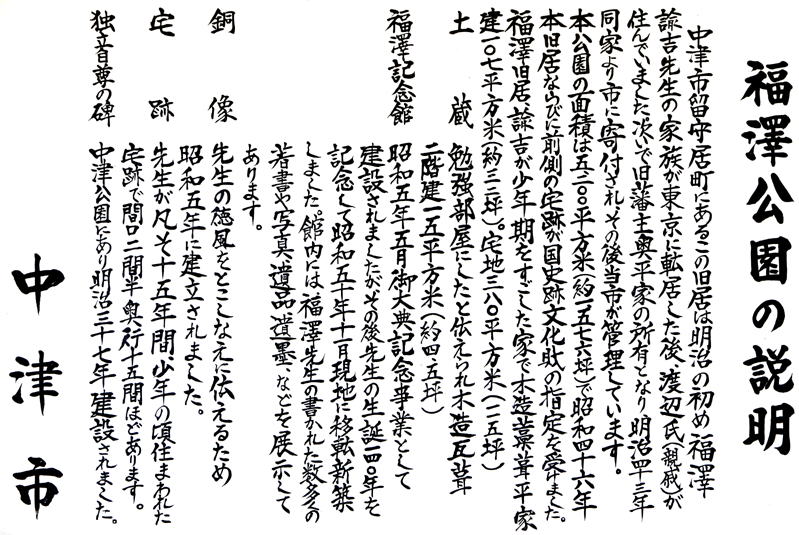 福澤公園の説明
中津市留守居町にあるこの旧居は明治の初め福澤
諭吉先生の家族が東京に転居した後、渡辺氏(親戚)が
住んでいました。次いで旧藩主奥平家の所有となり明治四十三年
同家より市に寄付され、その後当市が管理しています。
本公園の面積は五二〇〇平方米(約一五七六坪)で昭和四十六年
本旧居ならびに前側の宅跡が国史跡文化財の指定を受けました。
福澤旧居、諭吉が少年期をすごした家で木造藁葺平家
建一〇七平方米(約三二坪)。宅地三八〇平方米(一一五坪)
土蔵 勉強部屋にしたと伝えられ木造瓦葺
二階建一五平方米(約四・五坪)
福澤記念館 昭和五年五月御大典記念事業として
建設されましたがその後先生の生誕一四〇年を
記念して昭和五十年十一月現地に移転新築
しました。館内には福澤先生の書かれた数多くの
著書や写真、遺品、遺墨、などを展示して
あります。
銅像 先生の徳風をとこしなえに伝えるため
昭和五年に建立されました。
宅跡 先生が凡そ十五年間、少年の頃住まわれた
宅跡で間口二間半、奥行十五間ほどあります。
独立自尊の碑 中津公園にあり明治三十七年建設されました。
中津市